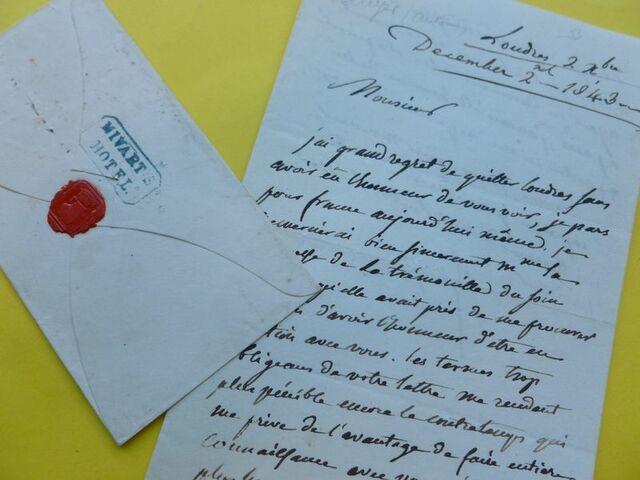 MIVART'S
HOTEL
Londres 2 Xbre
December 2nd 1843
Monsieur
j'ai grand regret de quitter londres sans
avoir eû l'honneur de vous voir, je pars
pour france aujourd'hui même. je
bien sincerement
de la trémouille du soin
qu'elle avait pris de me procurer
d'avoir l'honneur d'etre en
tion avec vous. les termes trop
bligeans de votre lettre me rendent
plus pénible encore le contretemps qui
me prive de l'avantage de faire entiere
connaissance avec